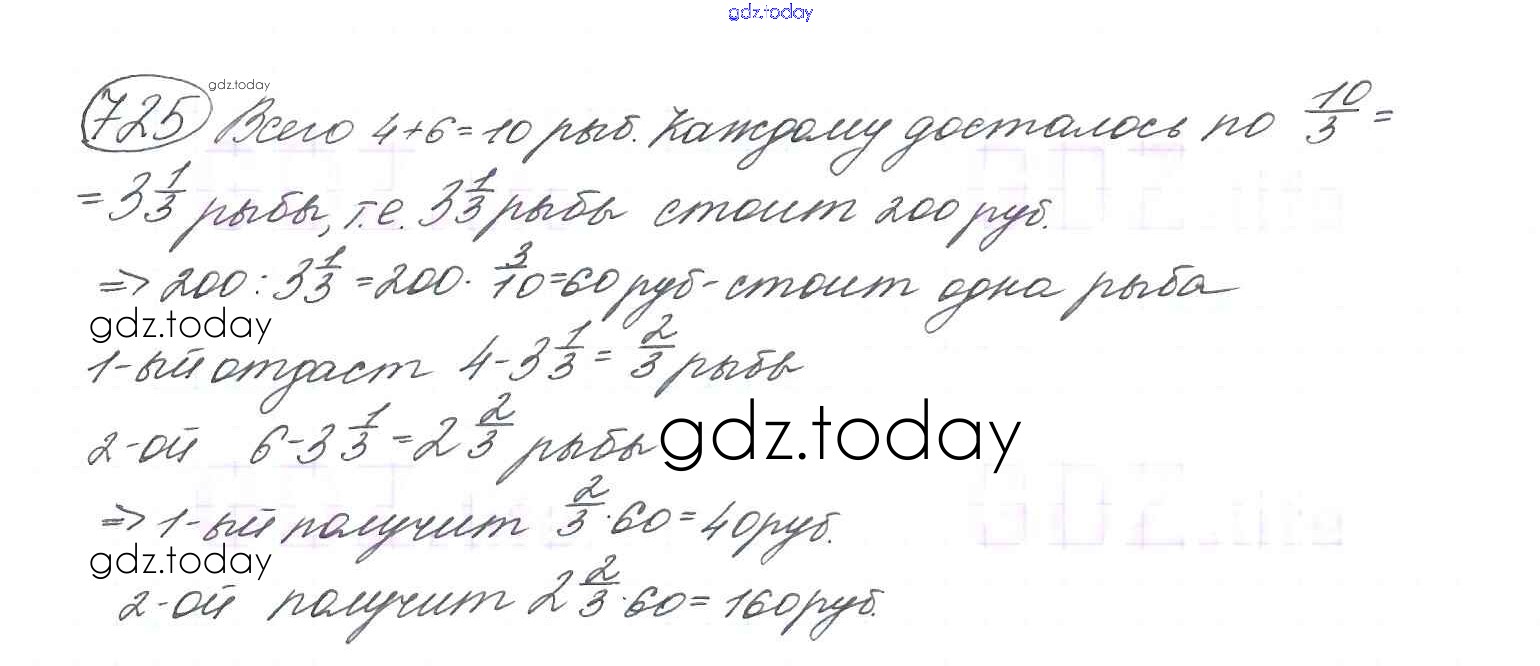 gdz.today
725 gdz.today Всего 4+6=10 рыб. Каждому досталось по 10/3 =
= 3 1/3 рыбы, т.е. 3 1/3 рыбы стоит 200 руб.
=> 200 : 3 1/3 = 200 · 3/10 = 60 руб - стоит одна рыба
gdz.today
1-ый отдаст 4 - 3 1/3 = 2/3 рыбы
2-ой 6 - 3 1/3 = 2 2/3 рыбы gdz.today
=> 1-ый получит 2/3 · 60 = 40 руб.
gdz.today
2-ой получит 2 2/3 · 60 = 160 руб.